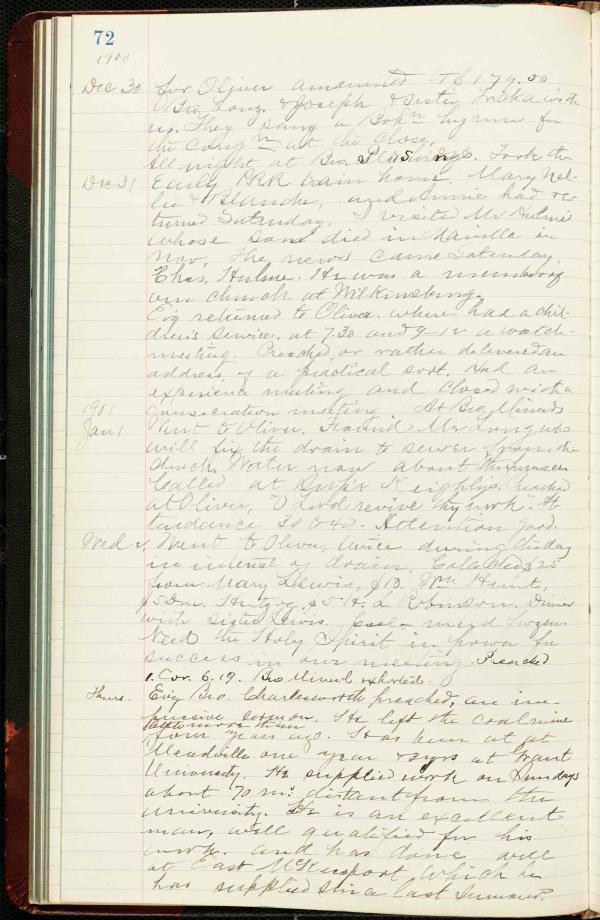 72
1900
Dec 30 for Oliver amounted to $179.50
Bro. Long. & Joseph & Sister with
us. They sang a Boh'n hymn for
the cong'n at the close.
All night at Bro. Took the
Dec 31 Early PRR train home. Mary Nel-
lie & Blanche, and Annie had re-
turned Saturday. I visited Mr Hulme
whose son died in Manilla in
Nov, the news came Saturday.
Chas. Hulme. He was a member of
our church at Wilkinsburg.
Ev'g returned to Oliver. where had a chil-
dren's service. at 7.30 and 9-12 a watch-
meeting. Preached, or rather delivered an
address, of a practical sort. Had an
experience meeting and closed with a
consecration meeting. At Bro. Minerds
1901
Jan 1 Went to Oliver. Found Mr Long who
will fix the drain to sewer from the
church. Water now about the furnace
Called at Sup't Keighly's. Preached
at Oliver, "O Lord revive thy work". At-
tendance 30 to 40. Attention good.
Wed 2, Went to Oliver, twice during the day
in interest of drain. Collected $25
from Mary Lewis, $13. Wm Hunt,
$5 $5 H. L. Robinson. Dinner
with Sister Lewis.
Need the Holy Spirit in power for
success in our meeting. Preached
1. Cor. 6.19. Bro Minerd exhorted.
Thurs. Ev'g Bro. Charlesworth preached, an im-
pressive sermon. He left the coal mine
little more than
four years ago. Has been at at
Meadville one year & 2 yrs at Grant
University. He supplied work on Sundays
about 70 mi. distant from the
university. He is an excellent
man, well qualified for his
work. and has done well
at East McKeesport which he
has supplied since last summer.